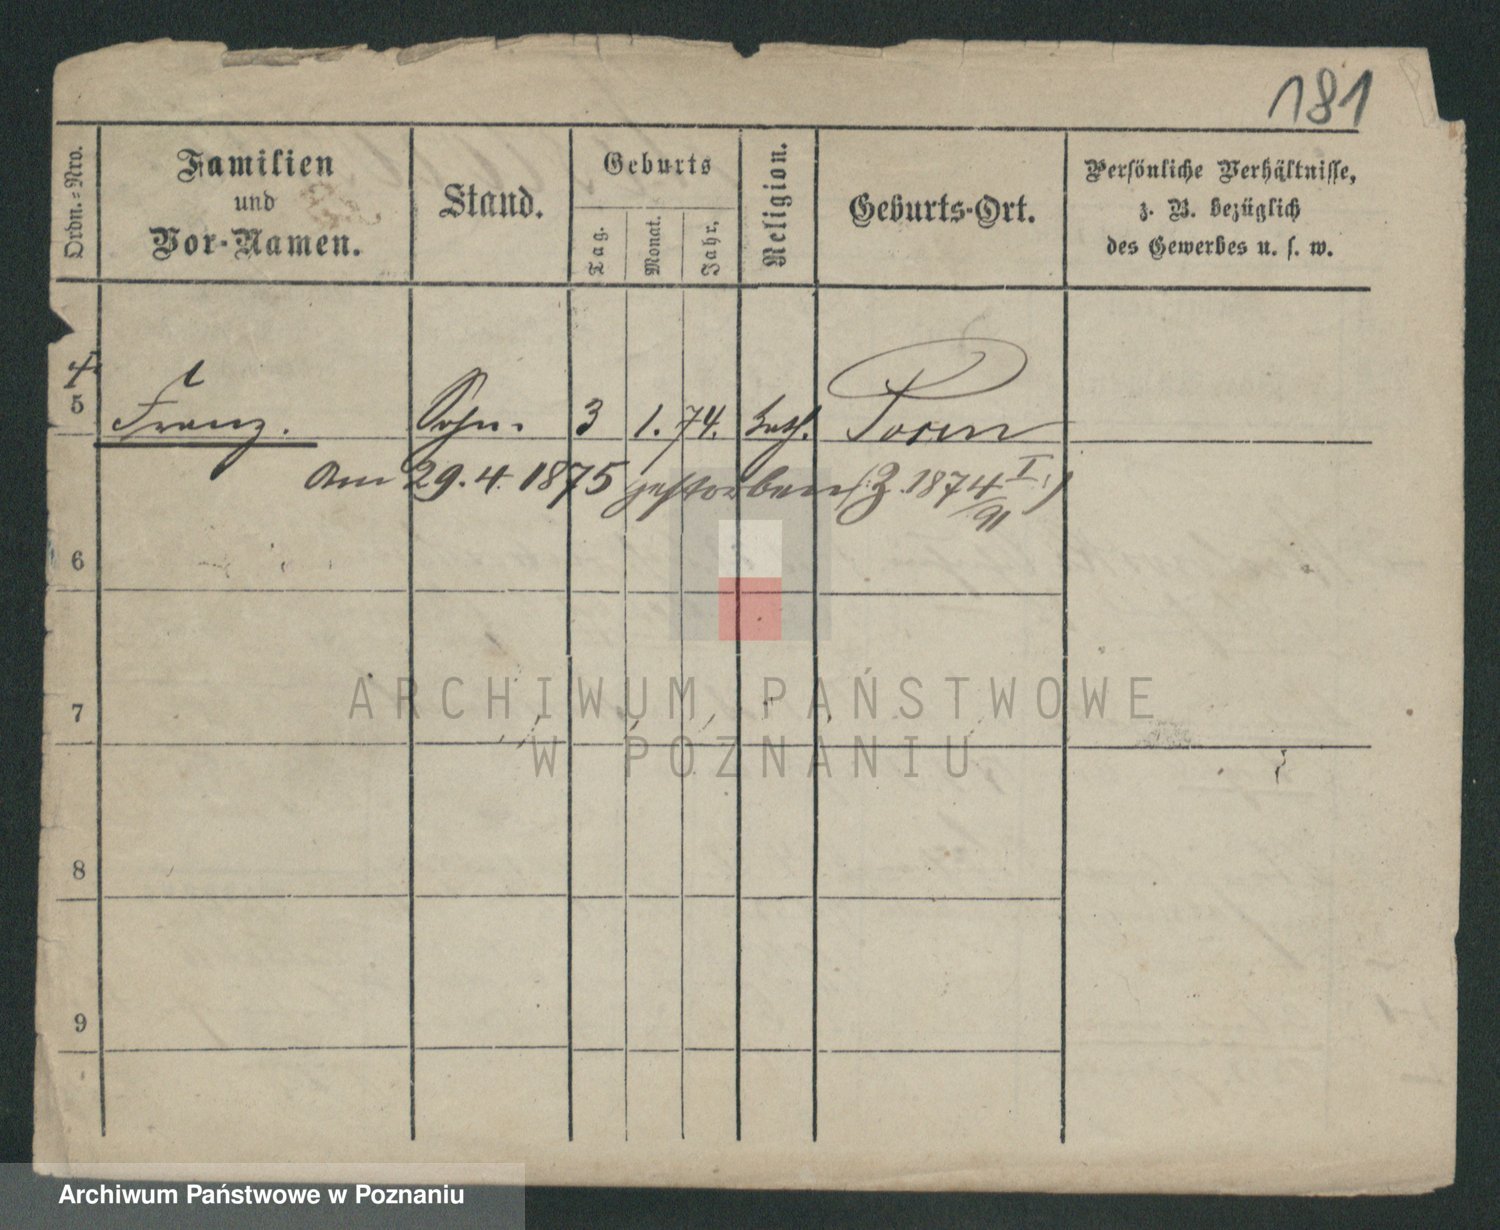 181
Ordn.-Nro.
Familien
und
Vor-Namen.
Stand.
Geburts
Tag.
Monat.
Jahr.
Religion.
Geburts-Ort.
Persönliche Verhältnisse,
z. B. bezüglich
des Gewerbes u. s. w.
5 Franz. Sohn. 3 1. 74. kath. Posen
Am 29. 4. 1875 gestorben (: Z. 1874 I/91 :)
6
ARCHIWUM PAŃSTWOWE
7
W POZNANIU
8
9
Archiwum Państwowe w Poznaniu